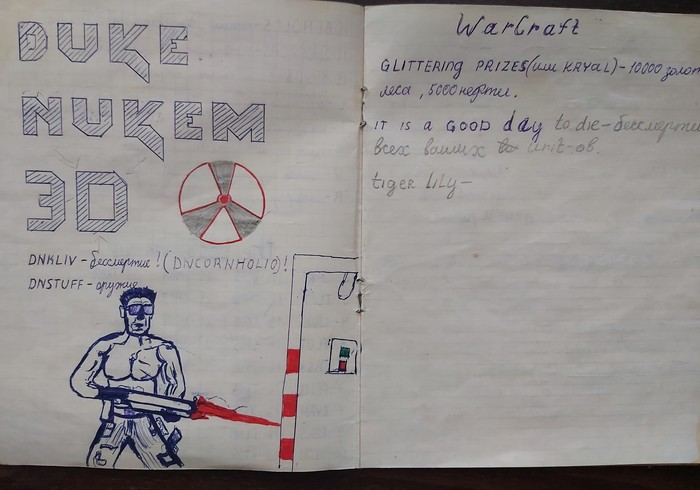 DUKE
NUKEM
3D
DNKLIV - бессмертие ! (DNCORNHOLIO)!
DNSTUFF - оружие
WarCraft
GLITTERING PRIZES (или KRYAL) - 10000 золот
леса, 5000 нефти.
IT IS a GOOD day to die - бессмертие
всех ваших unit-ов.
tiger LiLy -